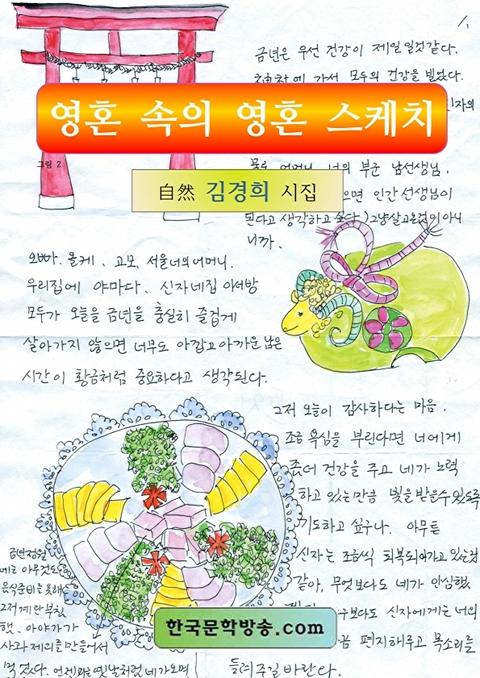 1.
금년은 우선 건강이 제일일것같다.
가서 모두의 건강을 빌었다.
영혼 속의 영혼 스케치
그림 2
너의 부군 남선생님,
自然 김경희 시집
으면 인간선생님이
된다고 생각하고 싶다.
니까.
오빠. 올케. 고모. 서울너의어머니.
우리집에 야마다. 신자네집
모두가 오늘을 금년을 충실히 즐겁게
살아가지 않으면 너무도 아깝고아까운
시간이 황금처럼 중요하다고 생각된다.
그저 오늘이 감사하다는 마음.
조금 욕심을 부린다면 너에게
좀더 건강을 주고 네가 노력
하고 있는만큼 빛을 받을수있도록
기도하고 싶구나. 아무튼
신자는 조금씩 회복되어가고있는것
같아, 무엇보다도 네가 안심했
구보다도 신자에게는 너의
편지해주고 목소리를
들려주길바란다.
금년정월
에는 아무것도
음식준비를 못해
그저계란부침
했. 아야가가
사과 제리를만들어서
먹었다. 언제나 옛날처럼 네가오면
한국문학방송.com